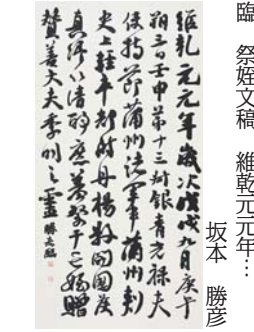 臨 祭姪文稿 維乾元元年…
坂本 勝彦
維乾元元年歳次戊戌九月庚午
朔三日壬申第十三叔銀青光禄夫
使持節蒲州諸軍事蒲州刺
史上軽車都尉丹楊縣開國侯
真卿以清酌庶羞祭于亡姪贈
賛善大夫季明之靈 勝彦臨